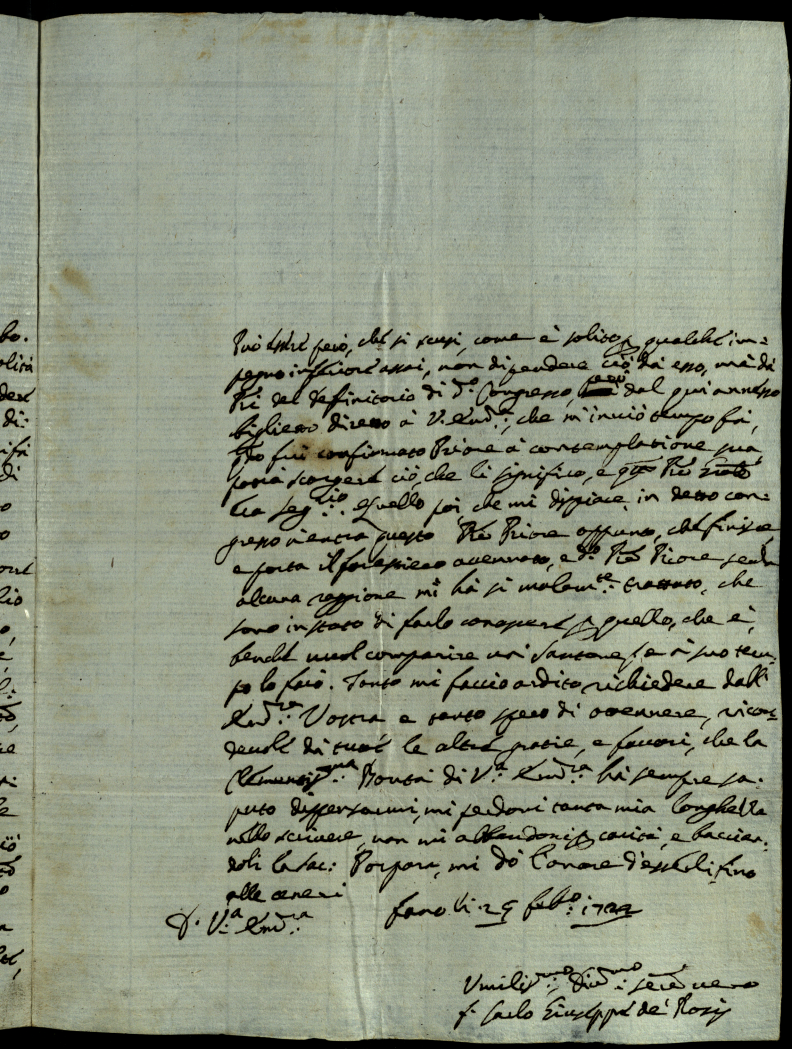 Può esser però, che si scusi, come è solito p qualche im=
pegno inferiore assai, non dipendere ciò da esso, mà dà
PPri del Definitorio di do Congresso, però dal qui annesso
biglietto diretto à V. Emza, che m'inviò tempo fà,
qdo fui confirmato Priore à contemplatione sua
potrà scorgere ciò, che li significo, e qto Pre
sia seg.rio. Quello poi, che mi dispiace, in detto con=
gresso rientra questo Pre Priore appunto, che finisce,
e porta il forastiero avennato, e do Pre Priore senza
alcuna raggione mi hà sì malamte trattato, che
sono in stato di farlo conoscere p quello, che è,
benche vuol comparire un Santone, e à suo tem=
po lo farò. Tanto mi faccio ardito richiedere dall'
Emza Vostra e tanto spero di ottennere, ricor=
devole di tutte le altre gratie, e favori, che la
Clementissma Bontà di Va Emza hà sempre sa=
puto dispensarmi, mi perdoni tanta mia longhezza
nello scrivere, non mi abbandoni p carità, e baccian=
doli la Sac: Porpora, mi dò l'onore d'esserli fino
alle ceneri
D. V.a Emza
Fano li 29 Febo: 1722
Umilismo, Divmo: Serre vero
f. Carlo Giuseppe de' Rossi